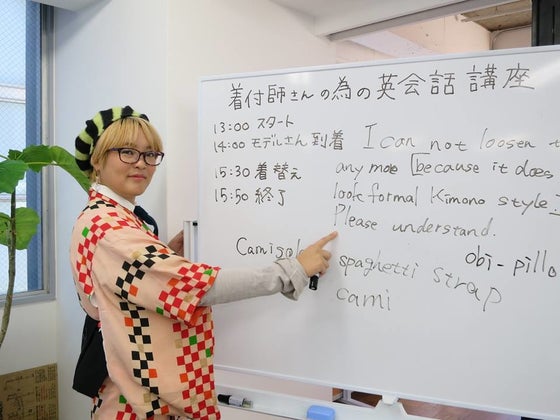 着付師さんの為の英会話講座
13:00 スタート
14:00 モデルさん到着
15:30 着替え
15:50 終了
I can not loosen
any more because it does
look formal Kimono style
Please understand.
obi-pillo
spaghetti strap
cami